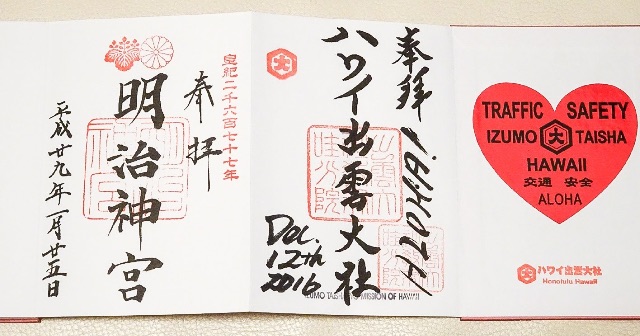 TRAFFIC SAFETY
IZUMO 大 TAISHA
HAWAII
交通 安全
ALOHA
ハワイ出雲大社
Honolulu Hawaii
奉拝
ALOHA!
ハワイ出雲大社
大
Dec.
12th
2016
IZUMO MISSION OF HAWAII
皇紀二千六百七十七年
奉拝
明治神宮
平成廿九年一月廿五日